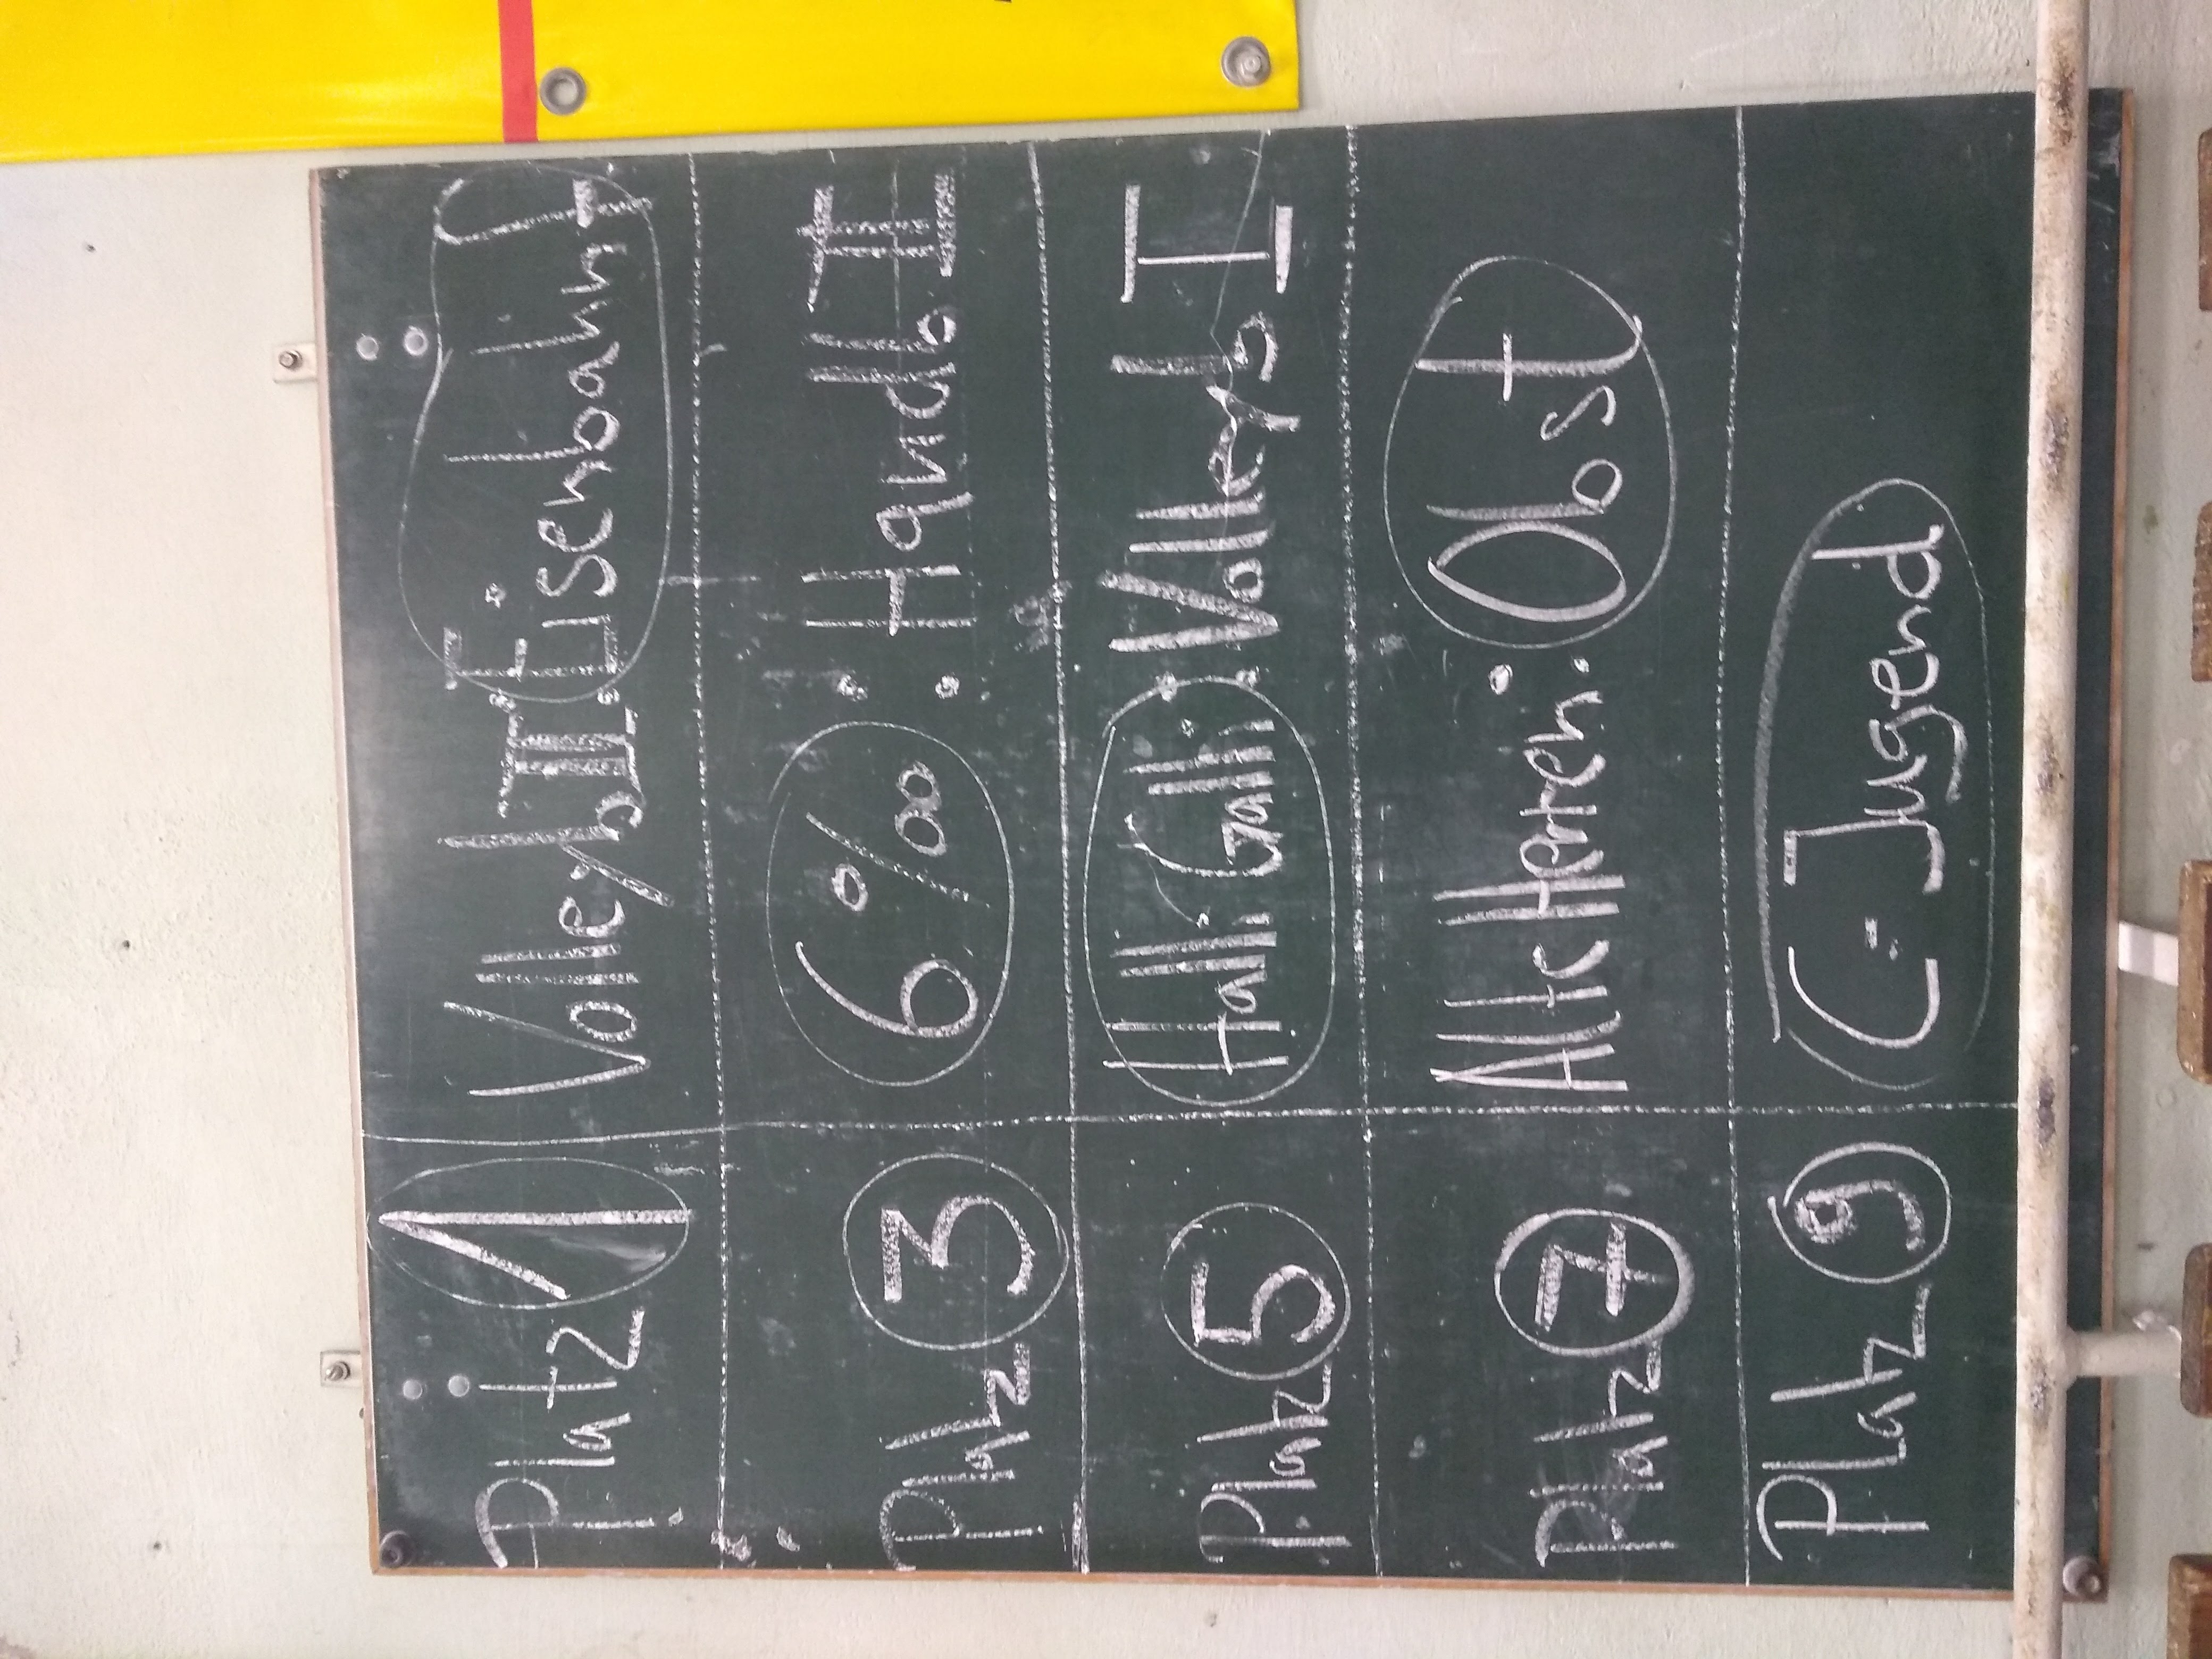 Platz 1 Volleyb III : Eisenbahn I
Platz 3 6‰ : Handb II
Platz 5 Halli Galli : Volleyb I
Platz 7 Alte Herren : Obst
Platz 9 C-Jugend